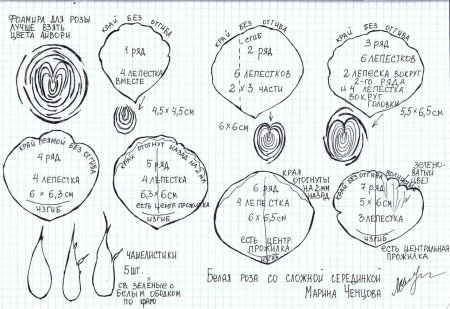 Фоамиран для розы
лучше взять
цвета айвори
край без отгиба
1 ряд
4 лепестка
вместе
4,5 x 4,5см
край без отгиба
Сгиб
2 ряд
6 лепестков
2 x 3 части
6 x 6см
край без отгиба
3 ряд
6 лепестков
2 лепеска вокруг
2-го ряда
и 4 лепестка
вокруг
головки
5,5 x 6,5см
край прямой без отгиба
4 ряд
4 лепестка
6 x 6,3см
изгиб
край отогнут назад на 2мм
5 ряд
4 лепестка
6,3 x 6см
есть центр. прожилка
изгиб
края
отогнуты
на 2мм
назад
6 ряд
4 лепестка
6 x 6,5см
есть центр.
прожилка
изгиб
край без отгиба
волны
зелено-
ватый
цвет
7 ряд
5 x 6см
3 лепестка
изгиб
есть центральная
прожилка
Чашелистики
5 шт.
св. зелёные с
белым ободком
по краю
Белая роза со сложной серединкой
Марина Ченцова